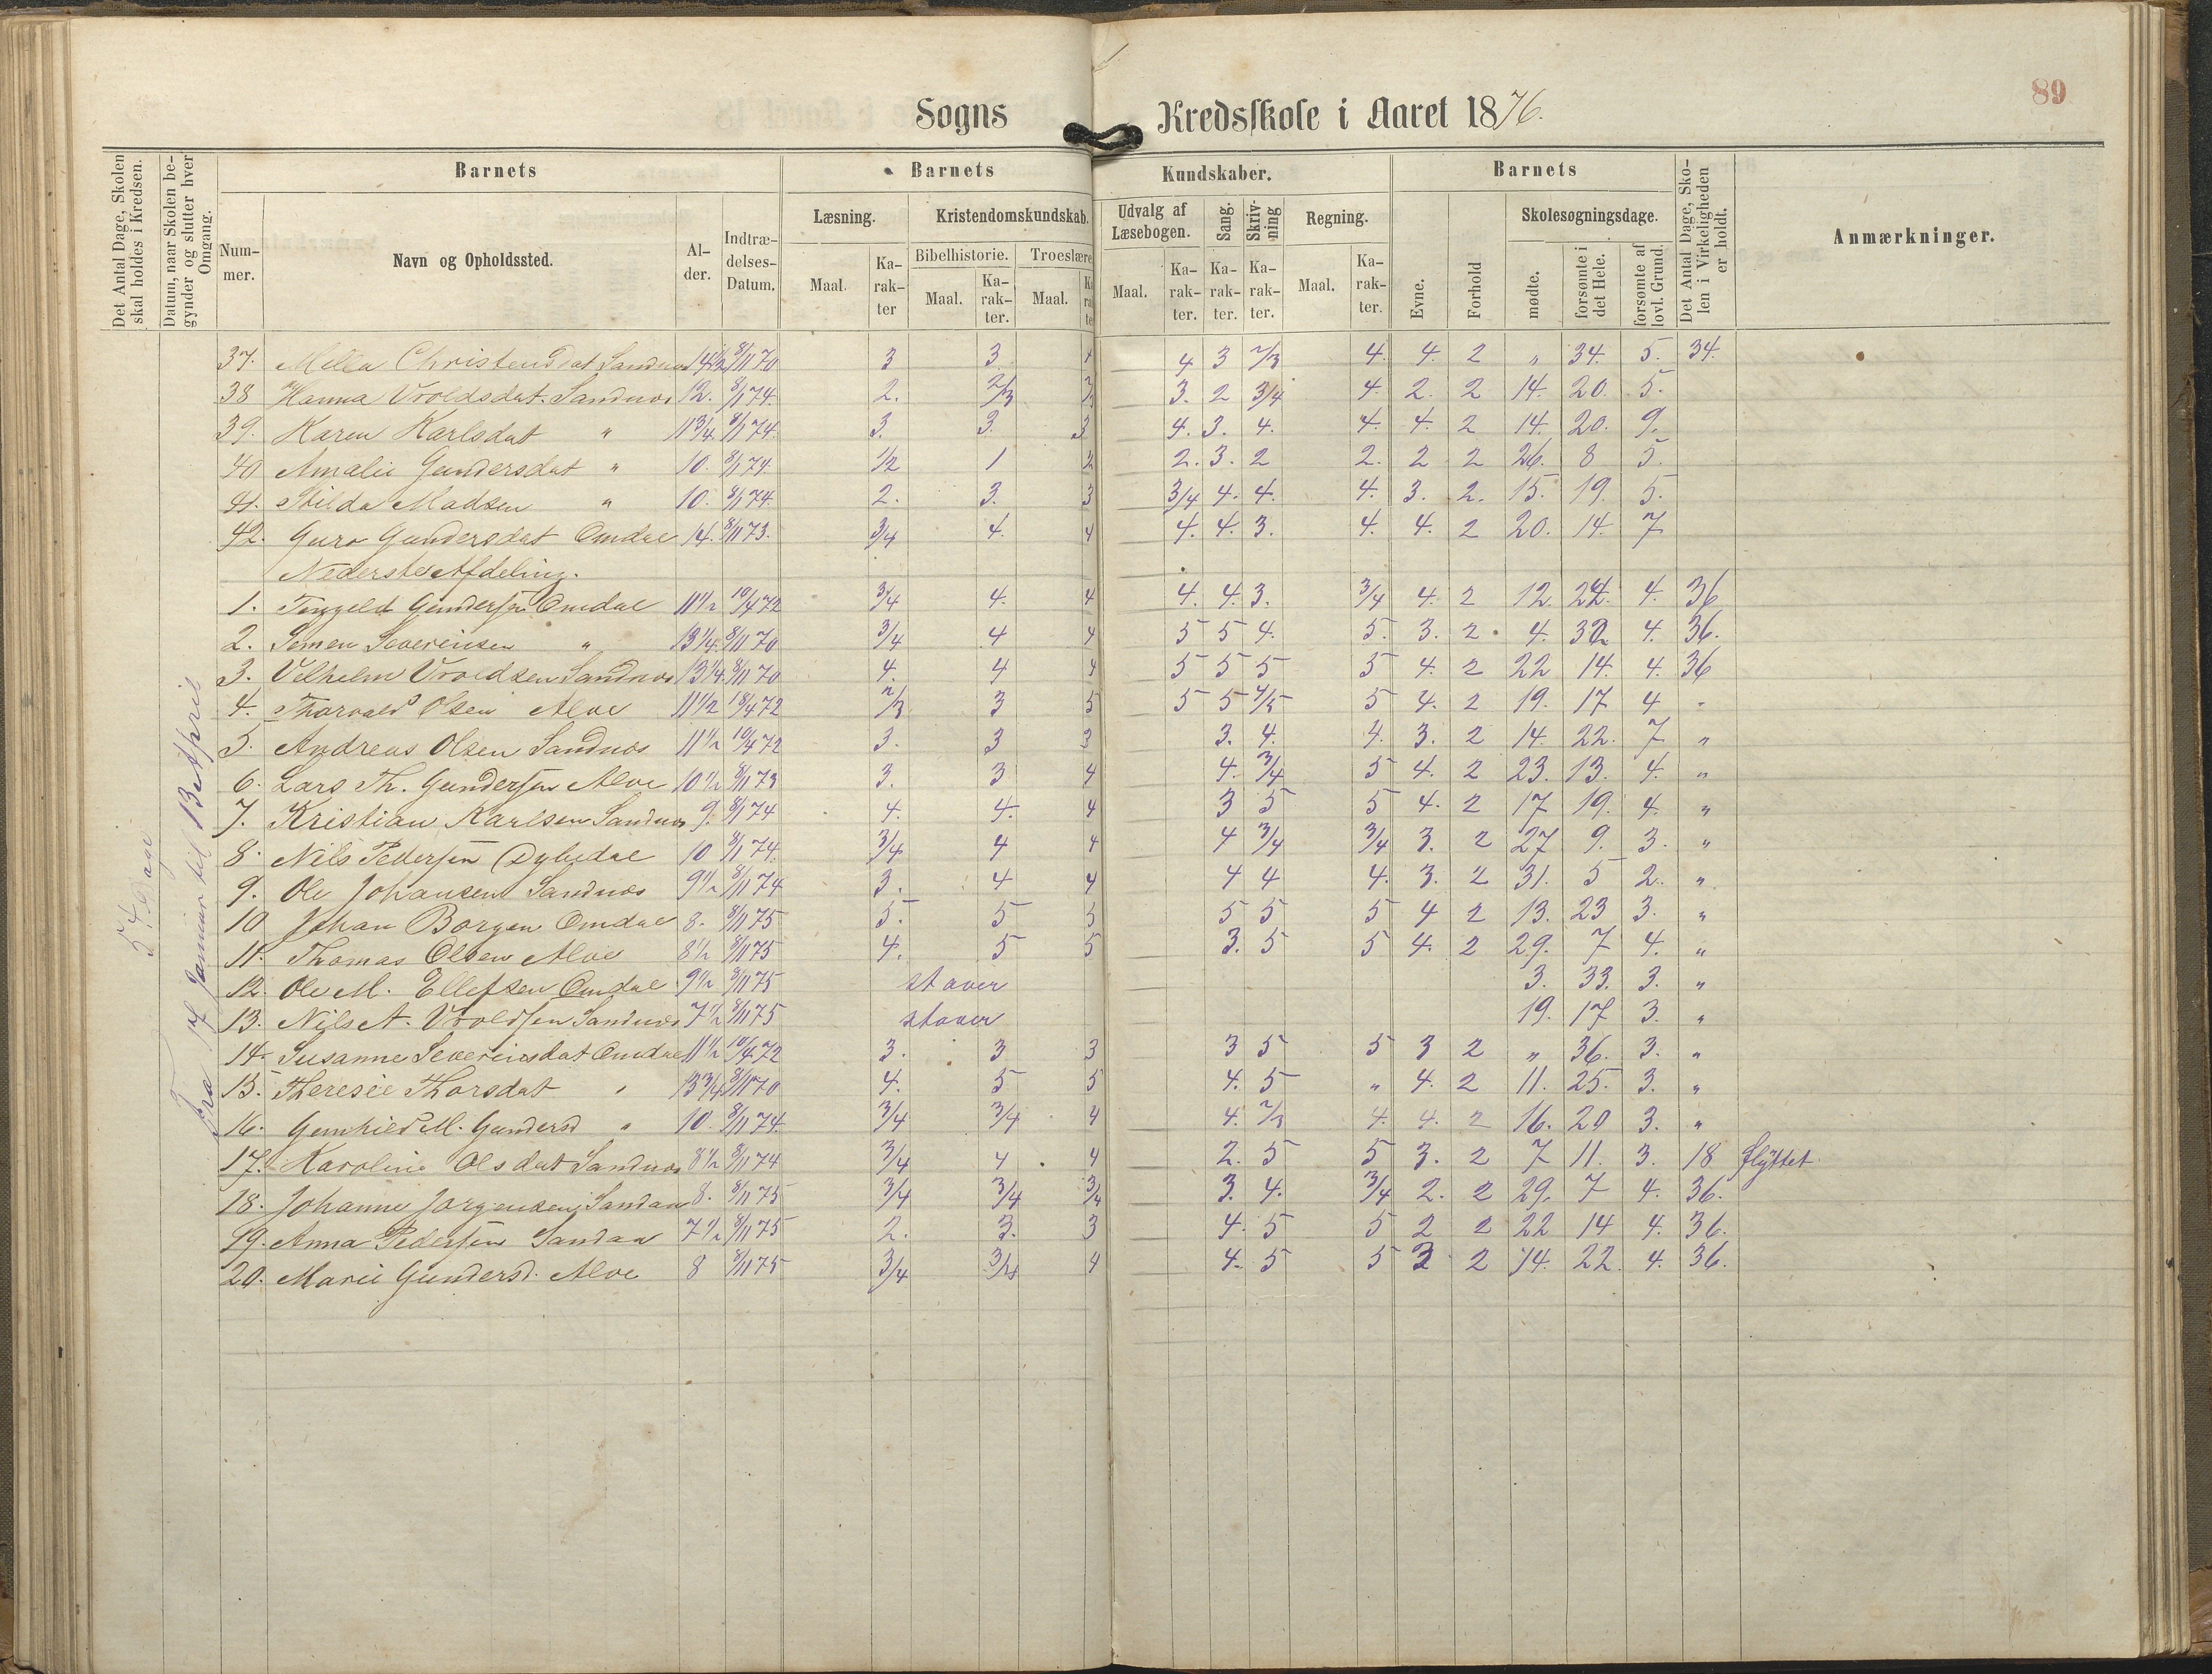 89
Sogns Kredsskole i Aaret 1876.
Det Antal Dage, Skolen skal holdes i Kredsen.
Datum, naar Skolen begynder og slutter hver Omgang.
Barnets
Nummer.
Navn og Opholdssted.
Alder.
Indtrædelses-Datum.
Barnets Kundskaber.
Læsning.
Maal.
Karakter
Kristendomskundskab.
Bibelhistorie.
Maal.
Karakter.
Troeslære
Maal.
Udvalg af Læsebogen.
Maal.
Karakter.
Sang.
Karakter.
Skrivning
Karakter.
Regning.
Maal.
Karakter.
Barnets
Evne.
Forhold
Skolesøgningsdage.
mødte.
forsømte i det Hele.
forsømte af lovl. Grund.
Det Antal Dage, Skolen i Virkeligheden er holdt.
Anmærkninger.
54 Dage
Fra 17 Januar til 13de April
37. Mella Christensdat Sandnes 14 1/2 8/11 70 3 3 4 4 3 2/3 4. 4. 2 " 34. 5. 34.
38 Hanna Vroldsdat. Sandnes 12. 8/1 74. 2. 2/3 2/3 3. 2 3/4 4. 2. 2 14. 20. 5.
39. Karen Karlsdat " 11 3/4 8/1 74. 3. 3. 3 4. 3. 4. 4. 4. 2 14. 20. 9.
40 Amalie Gundersdat " 10. 8/1 74. 1/2 1 2 2. 3. 2 2. 2 2 26. 8 5.
41. Hilda Madsen " 10. 8/1 74. 2. 3. 3 3/4 4. 4. 4. 3. 2. 15. 19. 5.
42. Guro Gundersdat Omdal 14. 8/11 73. 3/4 4. 4 4. 4. 3. 4. 4. 2 20. 14. 7
Nederste Afdeling.
1. Gundersen Omdal 11 1/2 10/4 72 3/4 4. 4 4. 4. 3. 3/4 4. 2 12. 24. 4. 36
2. Severinsen " 13 1/4 8/11 70 3/4 4 4 5 5 4. 5. 3. 2. 4. 32 4. 36.
3. Velhelm Vroldsen Sandnes 13 1/4 8/11 70 4. 4 4 5 5 5 5 4. 2 22 14. 4. 36
4. Thorvald Olsen Aloe 11 1/2 10/4 72 2/3 3 3 5 5 4/5 5 4. 2 19. 17 4 "
5. Andreas Olsen Sandnes 11 1/2 10/4 72 3. 3 3 3. 4. 4. 3. 2 14. 22. 7 "
6. Lars Th. Gundersen Aloe 10 1/2 8/11 73 3. 3 4 4. 3/4 5 4. 2 23. 13. 4. "
7. Kristian Karlsen Sandnes 9. 8/1 74 4. 4. 4 3 5 5 4. 2 17 19. 4. "
8. Nils Pedersen Dybdal 10 8/1 74. 3/4 4 4 4 3/4 3/4 3. 2 27 9. 3. "
9. Ole Johansen Sandnes 9 1/2 8/11 74 3. 4 4 4 4 4. 3. 2 31. 5 2. "
10 Johan Borgen Omdal 8. 8/11 75 5. 5 5 5 5 5 4 2 13. 23 3. "
11. Thomas Olsen Aloe 8 1/2 8/11 75 4. 5 5 3. 5 5 4. 2 29. 7 4. "
12. Ole M. Ellefsen Omdal 9 1/2 8/11 75 staver 3. 33. 3. "
13. Nils A. Vroldsen Sandnes 7 1/2 8/11 75 staver 19. 17 3. "
14. Susanne Severinsdat Omdal 11 1/2 10/4 72 3. 3 3 3 5 5 3 2 " 36. 3. "
15. Theresie Thorsdat " 13 3/4 8/11 70 4. 5 5 4. 5 " 4. 2 11. 25. 3. "
16. Gunhild M. Gundersd " 10. 8/11 74. 3/4 3/4 4 4. 2/3 4. 4. 2 16. 20 3. "
17. Karoline Olsdat Sandnes 8 1/2 8/11 74 3/4 4 4 2. 5 5 3. 2 7 11. 3. 18 flyttet
18. Johanne Jørgensen Sandaa 8. 8/11 75 3/4 3/4 3/4 3. 4. 3/4 2. 2 29. 7 4. 36.
19. Anna Pedersen Sandaa 7 1/2 8/11 75 2. 3. 3 4. 5 5 2 2 22 14 4. 36.
20. Marie Gundersd. Aloe 8 8/11 75 3/4 3/4 4 4. 5 5 3 2 14. 22. 4. 36.